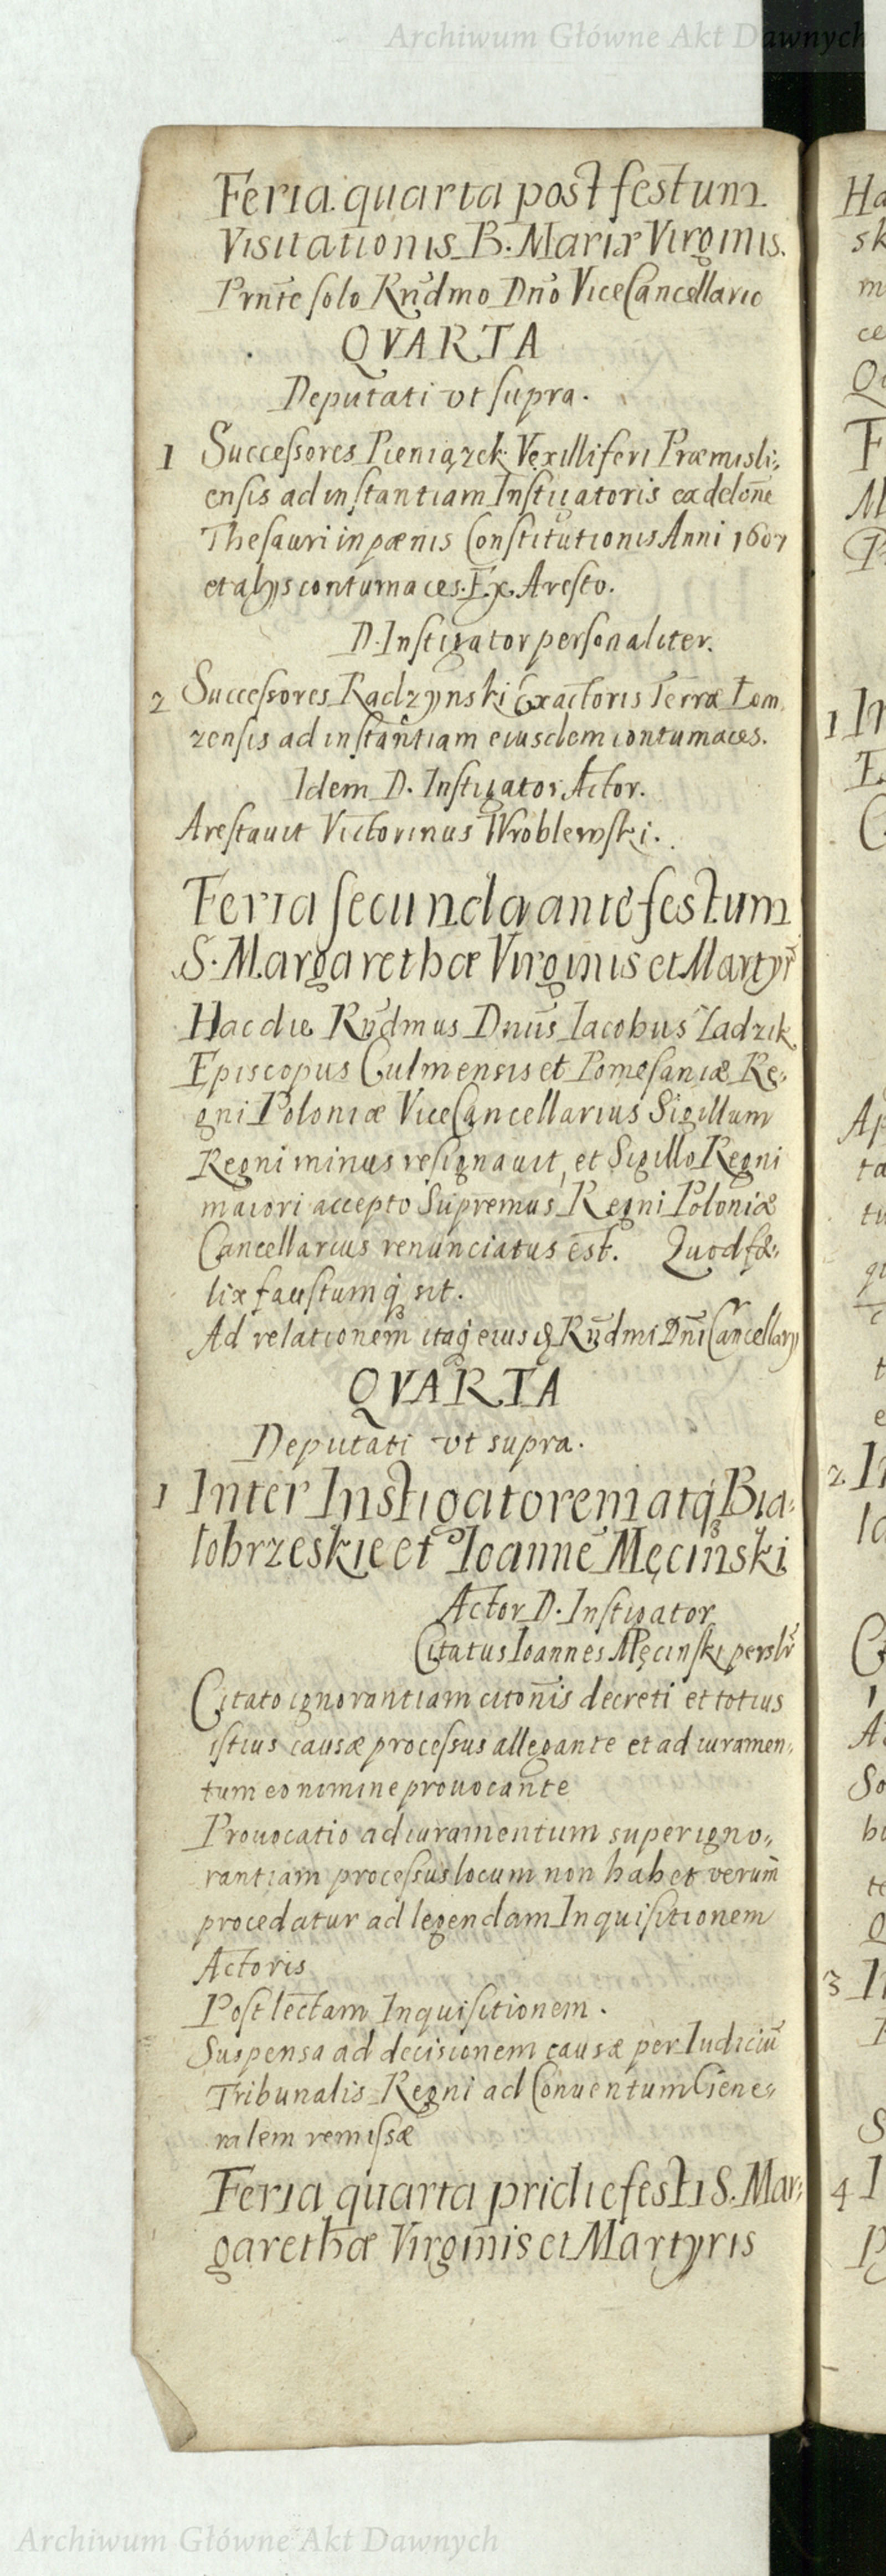 Archiwum Główne Akt Dawnych
Feria quarta post festum
Visitationis B. Mariæ Virginis.
Prnte solo Rndmo Dno ViceCancellario
QVARTA
Deputati vt supra.
1 Successores Pieniązek Vexilliferi Præmisli-
ensis ad instantiam Instigatoris ex delone
Thesauri in pænis Constitutionis Anni 1607
et alijs contumaces. Ex Aresto.
D. Instigator personaliter.
2 Successores Radzynski Exactoris Terræ Lom
zensis ad instantiam eiusdem contumaces.
Idem D. Instigator Actor.
Arestauit Victorinus Wroblewski.
Feria secunda ante festum
S. Margarethæ Virginis et Martyr
Hac die Rndmus Dnus Iacobus Zadzik
Episcopus Culmensis et Pomesaniæ Re-
gni Poloniæ ViceCancellarius Sigillum
Regni minus resignauit, et Sigillo Regni
maiori accepto Supremus Regni Poloniæ
Cancellarius renunciatus est. Quod fæ-
lix faustumq sit.
Ad relationem itaq eiusd Rndmi Dni Cancellarij
QVARTA
Deputati vt supra.
1 Inter Instigatorem atq Bia-
lobrzeskie et Ioanne Męcinski
Actor D. Instigator
Citatus Ioannes Męcinski persltr
Citato ignorantiam citonis decreti et totius
istius causæ processus allegante et ad iuramen-
tum eo nomine prouocante
Prouocatio ad iuramentum super igno-
rantiam processus locum non habet verum
procedatur ad legendam Inquisitionem
Actoris
Post lectam Inquisitionem.
Suspensa ad decisionem causæ per Iudiciu
Tribunalis Regni ad Conuentum Gene-
ralem remissæ
Feria quarta pridie festi S. Mar-
garethæ Virginis et Martyris
Archiwum Główne Akt Dawnych